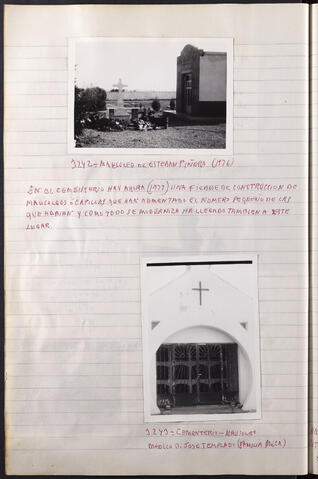 3242 - MAUSOLEO DE ESTEBAN PIÑERA (1976)
EN EL CEMENTERIO HAY AHORA (1977) UNA FIEBRE DE CONSTRUCCION DE
MAUSOLEOS o CAPILLAS QUE HAN AUMENTADO EL NÚMERO PEQUEÑO DE LAS
QUE HABIAN Y COMO TODO SE MODERNIZA HA LLEGADO TAMBIEN A ESTE
LUGAR.
3243 - CEMENTERIO - MAUSOLEO
MEDICO D. JOSE TEMPLADO (FAMILIA